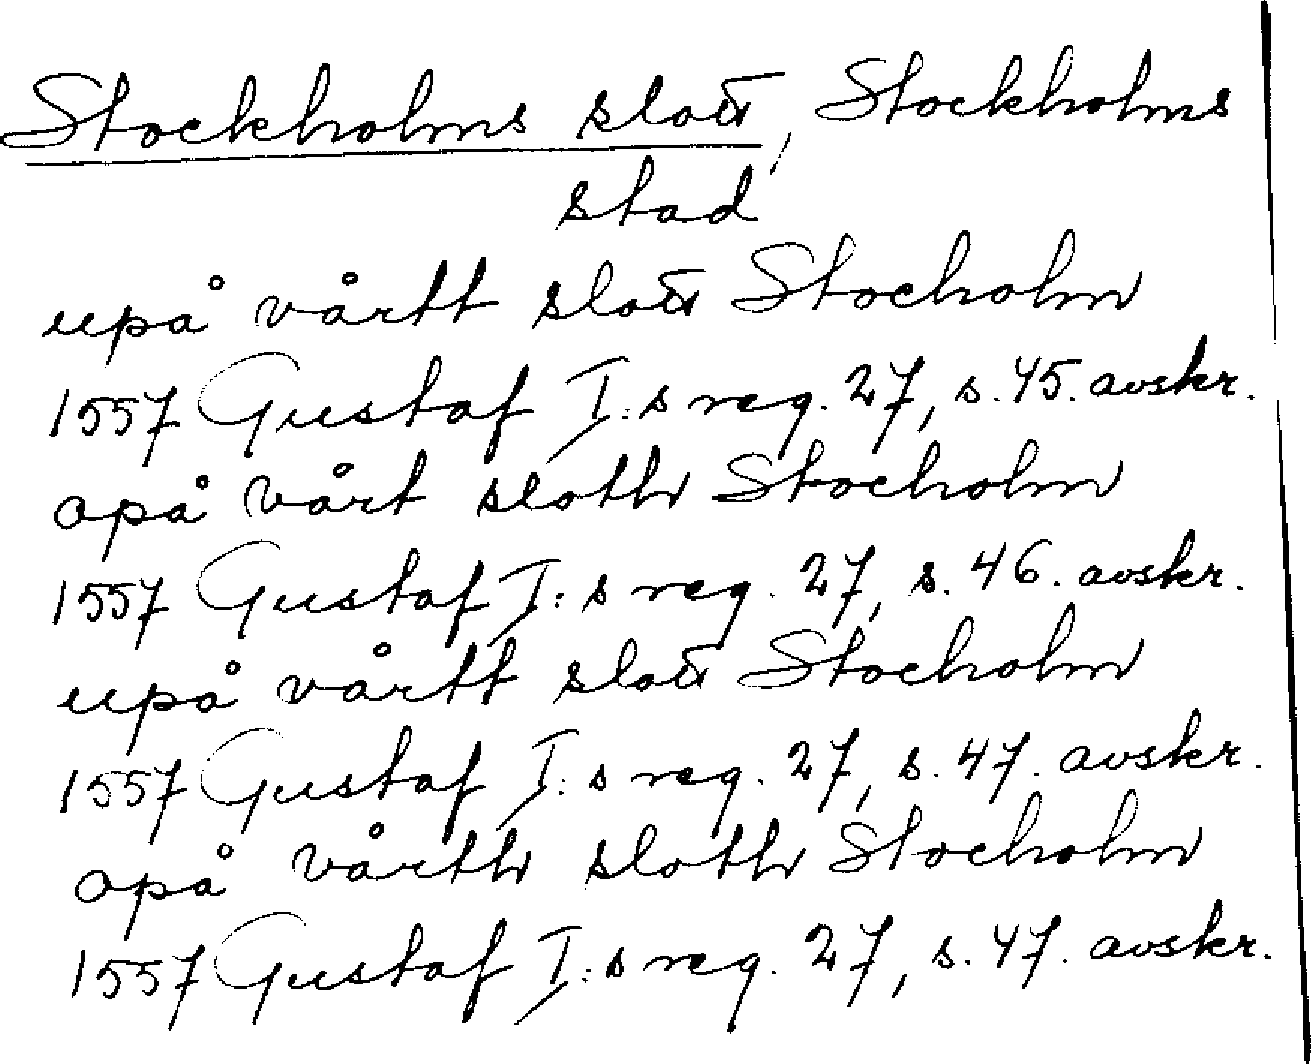 Stockholms slott, Stockholms
stad
upå vårtt slott Stocholm
1557 Gustaf I:s reg. 27, s. 45. avskr.
opå vårt sloth Stocholm
1557 Gustaf I:s reg. 27, s. 46. avskr.
upå vårtt slott Stocholm
1557 Gustaf I:s reg. 27, s. 47. avskr.
opå vårth sloth Stocholm
1557 Gustaf I:s reg. 27, s. 47. avskr.